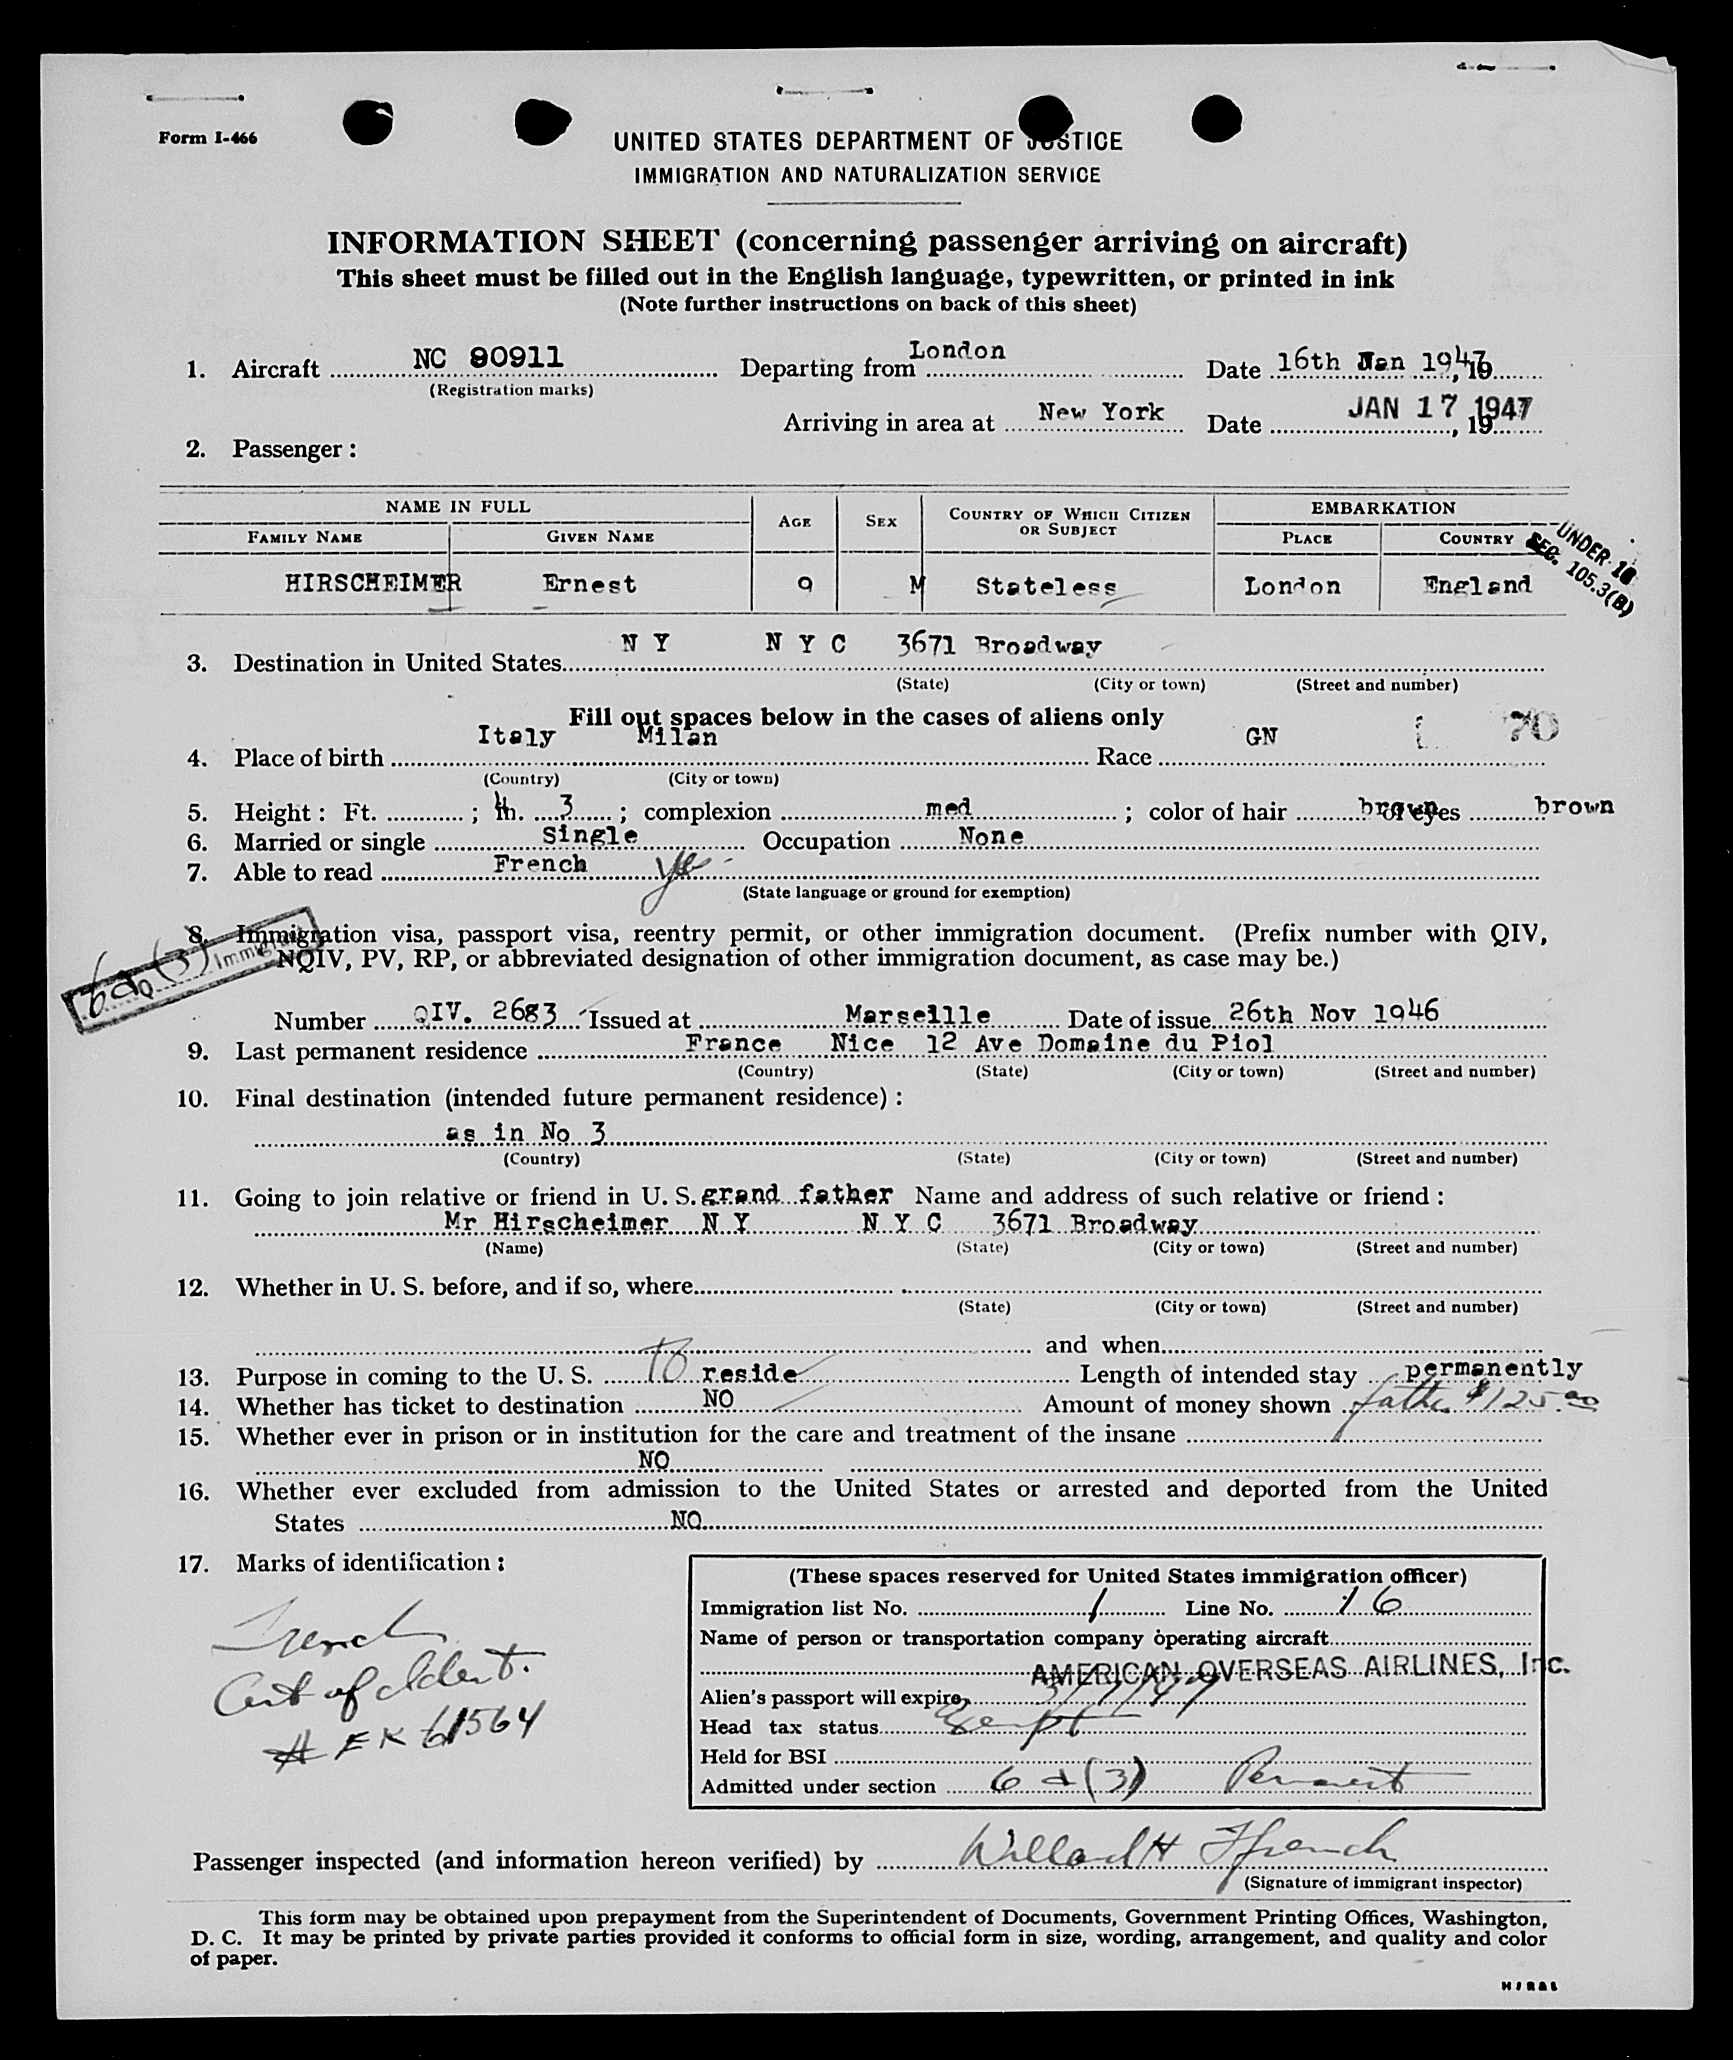 Form I-466
UNITED STATES DEPARTMENT OF JUSTICE
IMMIGRATION AND NATURALIZATION SERVICE
INFORMATION SHEET (concerning passenger arriving on aircraft)
This sheet must be filled out in the English language, typewritten, or printed in ink
(Note further instructions on back of this sheet)
1. Aircraft NC 90911 Departing from London Date 16th Jan 1947, 19
(Registration marks)
Arriving in area at New York Date JAN 17 1947, 19
2. Passenger:
NAME IN FULL AGE SEX COUNTRY OF WHICH CITIZEN OR SUBJECT EMBARKATION
FAMILY NAME GIVEN NAME PLACE COUNTRY
UNDER 16
SEC. 105.3(B)
HIRSCHEIMER Ernest 9 M Stateless London England
3. Destination in United States N Y N Y C 3671 Broadway
(State) (City or town) (Street and number)
Fill out spaces below in the cases of aliens only
4. Place of birth Italy Milan Race GN 70
(Country) (City or town)
5. Height: Ft. ; 4 In. 3 ; complexion med ; color of hair brown of eyes brown
6. Married or single Single Occupation None
7. Able to read French yes
(State language or ground for exemption)
8. Immigration visa, passport visa, reentry permit, or other immigration document. (Prefix number with QIV,
NQIV, PV, RP, or abbreviated designation of other immigration document, as case may be.)
6a (3) Immigrant
Number QIV. 2683 Issued at Marseille Date of issue 26th Nov 1946
9. Last permanent residence France Nice 12 Ave Domaine du Piol
(Country) (State) (City or town) (Street and number)
10. Final destination (intended future permanent residence):
as in No 3
(Country) (State) (City or town) (Street and number)
11. Going to join relative or friend in U. S. grand father Name and address of such relative or friend:
Mr Hirscheimer N Y N Y C 3671 Broadway
(Name) (State) (City or town) (Street and number)
12. Whether in U. S. before, and if so, where
(State) (City or town) (Street and number)
and when
13. Purpose in coming to the U. S. To reside Length of intended stay permanently
14. Whether has ticket to destination NO Amount of money shown father $125.00
15. Whether ever in prison or in institution for the care and treatment of the insane
NO
16. Whether ever excluded from admission to the United States or arrested and deported from the United
States NO
17. Marks of identification:
French
Cert of Ident.
# EK 61564
(These spaces reserved for United States immigration officer)
Immigration list No. 1 Line No. 16
Name of person or transportation company operating aircraft
AMERICAN OVERSEAS AIRLINES, Inc.
Alien's passport will expire
Head tax status Exempt
Held for BSI
Admitted under section 6 d (3) Permanent
Passenger inspected (and information hereon verified) by Willard H Ffrench
(Signature of immigrant inspector)
This form may be obtained upon prepayment from the Superintendent of Documents, Government Printing Offices, Washington,
D. C. It may be printed by private parties provided it conforms to official form in size, wording, arrangement, and quality and color
of paper.